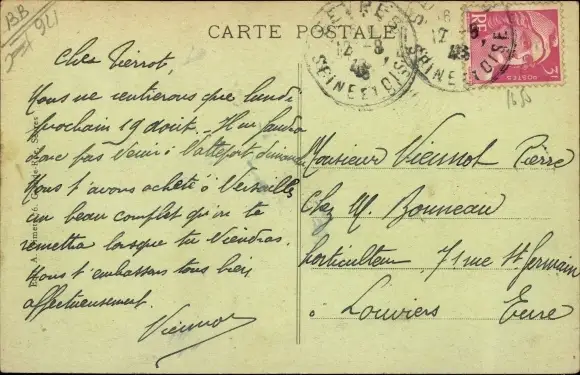 BB
CARTE POSTALE
SÈVRES
12 - 8
46
SEINE ET OISE
RF
3F
POSTES
Cher Pierrot,
Nous ne rentrerons que lundi
prochain 19 août. Il ne faudra
donc pas venir à Valtefort dimanche
Nous t'avons acheté à Versailles
un beau complet qu'on te
remettra lorsque tu viendras.
Nous t'embrassons tous bien
affectueusement.
Viennot
Monsieur Viennot Pierre
Chez M. Bonneau
horticulteur 71 rue St Germain
à Louviers Eure